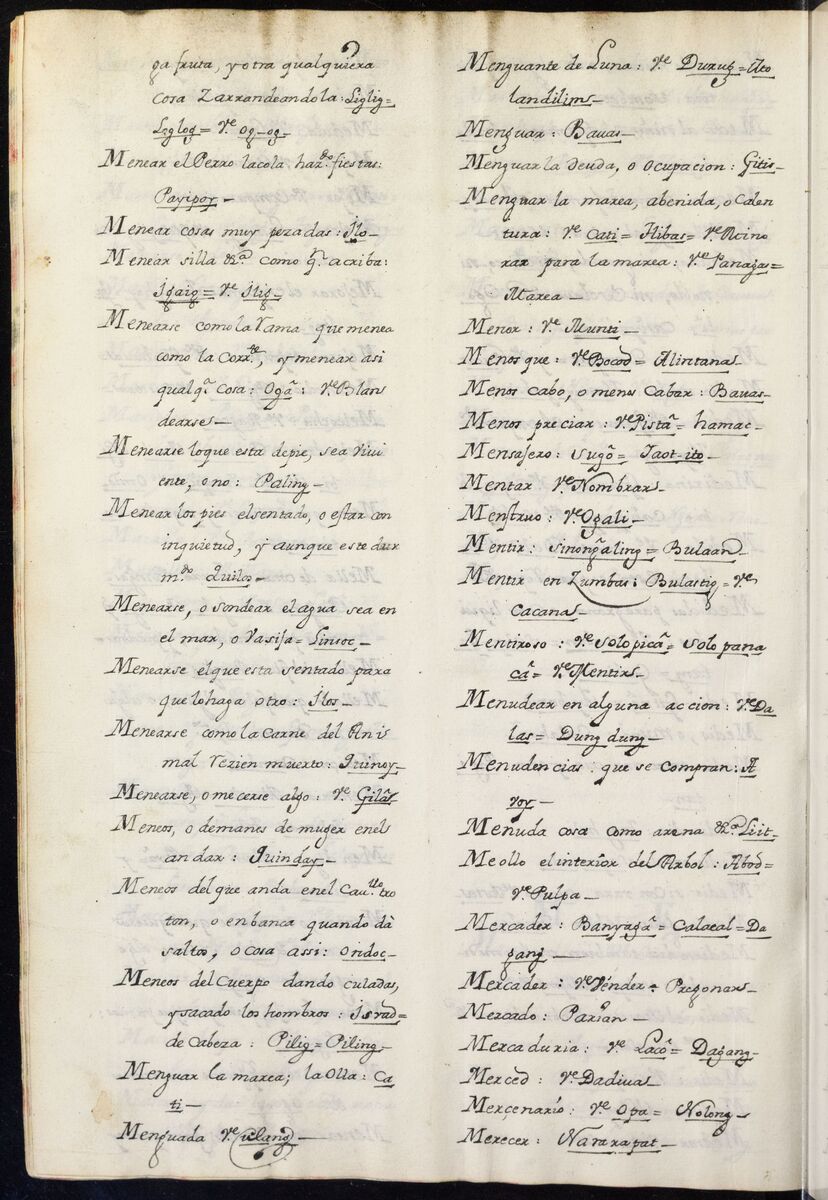 ga fruta, y otra qualquiera
cosa Zarrandeandola: Liglig=
Leglog= Vᵉ og-og-
Menear el Perro la cola harᵈᵒ fiestas:
Payipoy-
Menear cosas muy pezadas: Ilo-
Menear silla &ᵃ como qᵉ acriba:
Igaig= Vᵉ Ilig-
Menearse como la Rama que menea
como la Corrᵗᵉ, y menear asi
qualqᵃ cosa: Ogã: Vᵉ Blan
dearse-
Menearse loque esta depie, sea Vivi
ente, o no: Paling-
Menear los pies el sentado, o estar con
inquietud, y aunque este dur
mᵈᵒ Quilos-
Menearse, o sondear el agua sea en
el mar, o Vasija= Linsoc-
Menearse el que esta sentado para
que lo haga otro: Ilos-
Menearse como la Carne del Ani
mal rezien muerto: Quinoy-
Menearse, o mecerse algo: Vᵉ Gilãs
Meneos, o demanes de muger enel
andar: Quinday-
Meneos del que anda enel Cauˡˡᵒ tro
ton, o en banca quando dà
saltos, o cosa assi: Ondoc-
Meneos del Cuerpo dando culadas,
y sacado los hombros: Israd=
de Cabeza: Pilig= Piling-
Menguar la marea; la Olla: Ca
ti-
Menguada Vᵉ Culang-
Menguante de Luna: Vᵉ Durug= Ato
landilim-
Menguar: Bauas-
Menguar la Deuda, o Ocupacion: Gitis-
Menguar la marea, abenida, o Calen
tura: Vᵉ Cati= Hibas= Vᵉ Reino
rar para la marea: Vᵉ Panagas=
Marea-
Menor: Vᵉ Munti-
Menos que: Vᵉ Bocod= Alintana-
Menos cabo, o menos cabar: Bauas-
Menos preciar: Vᵉ Pistã= hamac-
Mensajero: sugõ= Taot-ito-
Mentar Vᵉ Nombrar-
Menstruo: Vᵉ Ogali-
Mentir: sinongãling= Bulaan-
Mentir en Zumbas: Bulastig= Vᵉ
Cacana-
Mentiroso: Vᵉ solopicã= solo pana
cã= Vᵉ Mentir-
Menudear en alguna accion: Vᵉ Da
las= Dung dung-
Menudencias: que se compran: A
roy-
Menuda cosa como arena &ᵃ Liit-
Meollo el interior del Arbol: Abod=
Vᵉ Pulpa-
Mercader: Banyagã= Calacal= Da
gang-
Mercader: Vᵉ Vénder= Pregonar-
Mercado: Parian-
Mercaduria: Vᵉ Lacõ= Dagang-
Merced: Vᵉ Dadiua-
Merçenario: Vᵉ Opa= Nolong-
Merecer: Nararapat-